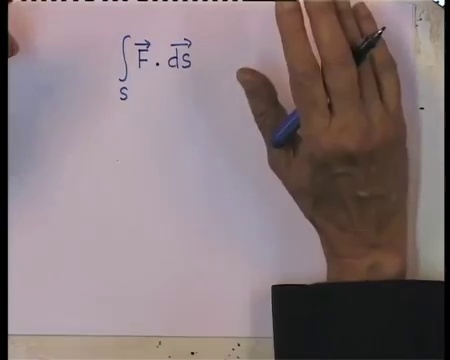 ∫_S F⃗ . ds⃗